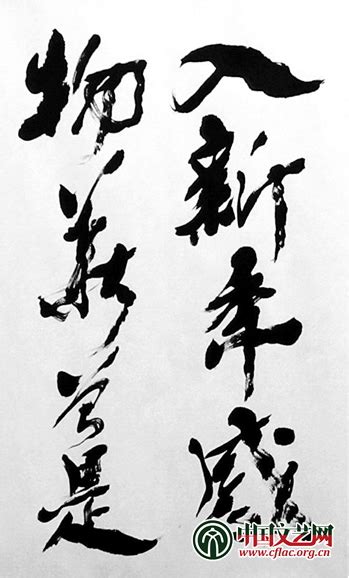 入新年感
物曾是
中国文艺网
www.cflac.org.cn